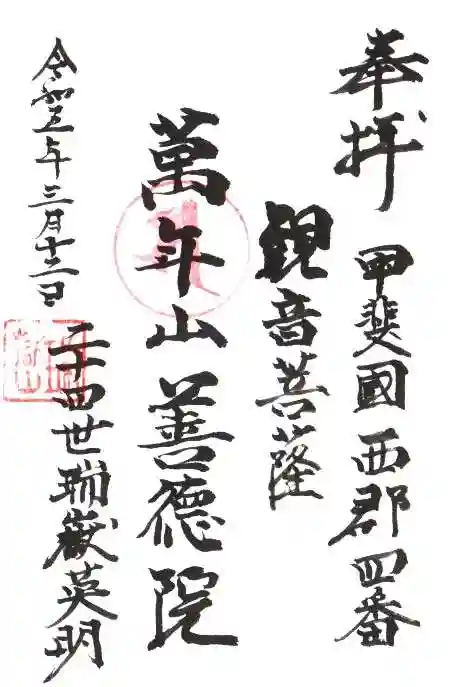 奉拝 甲斐國西郡四番
観音菩薩
萬年山善德院
令和五年三月十三日
二十四世瑞嶽英明